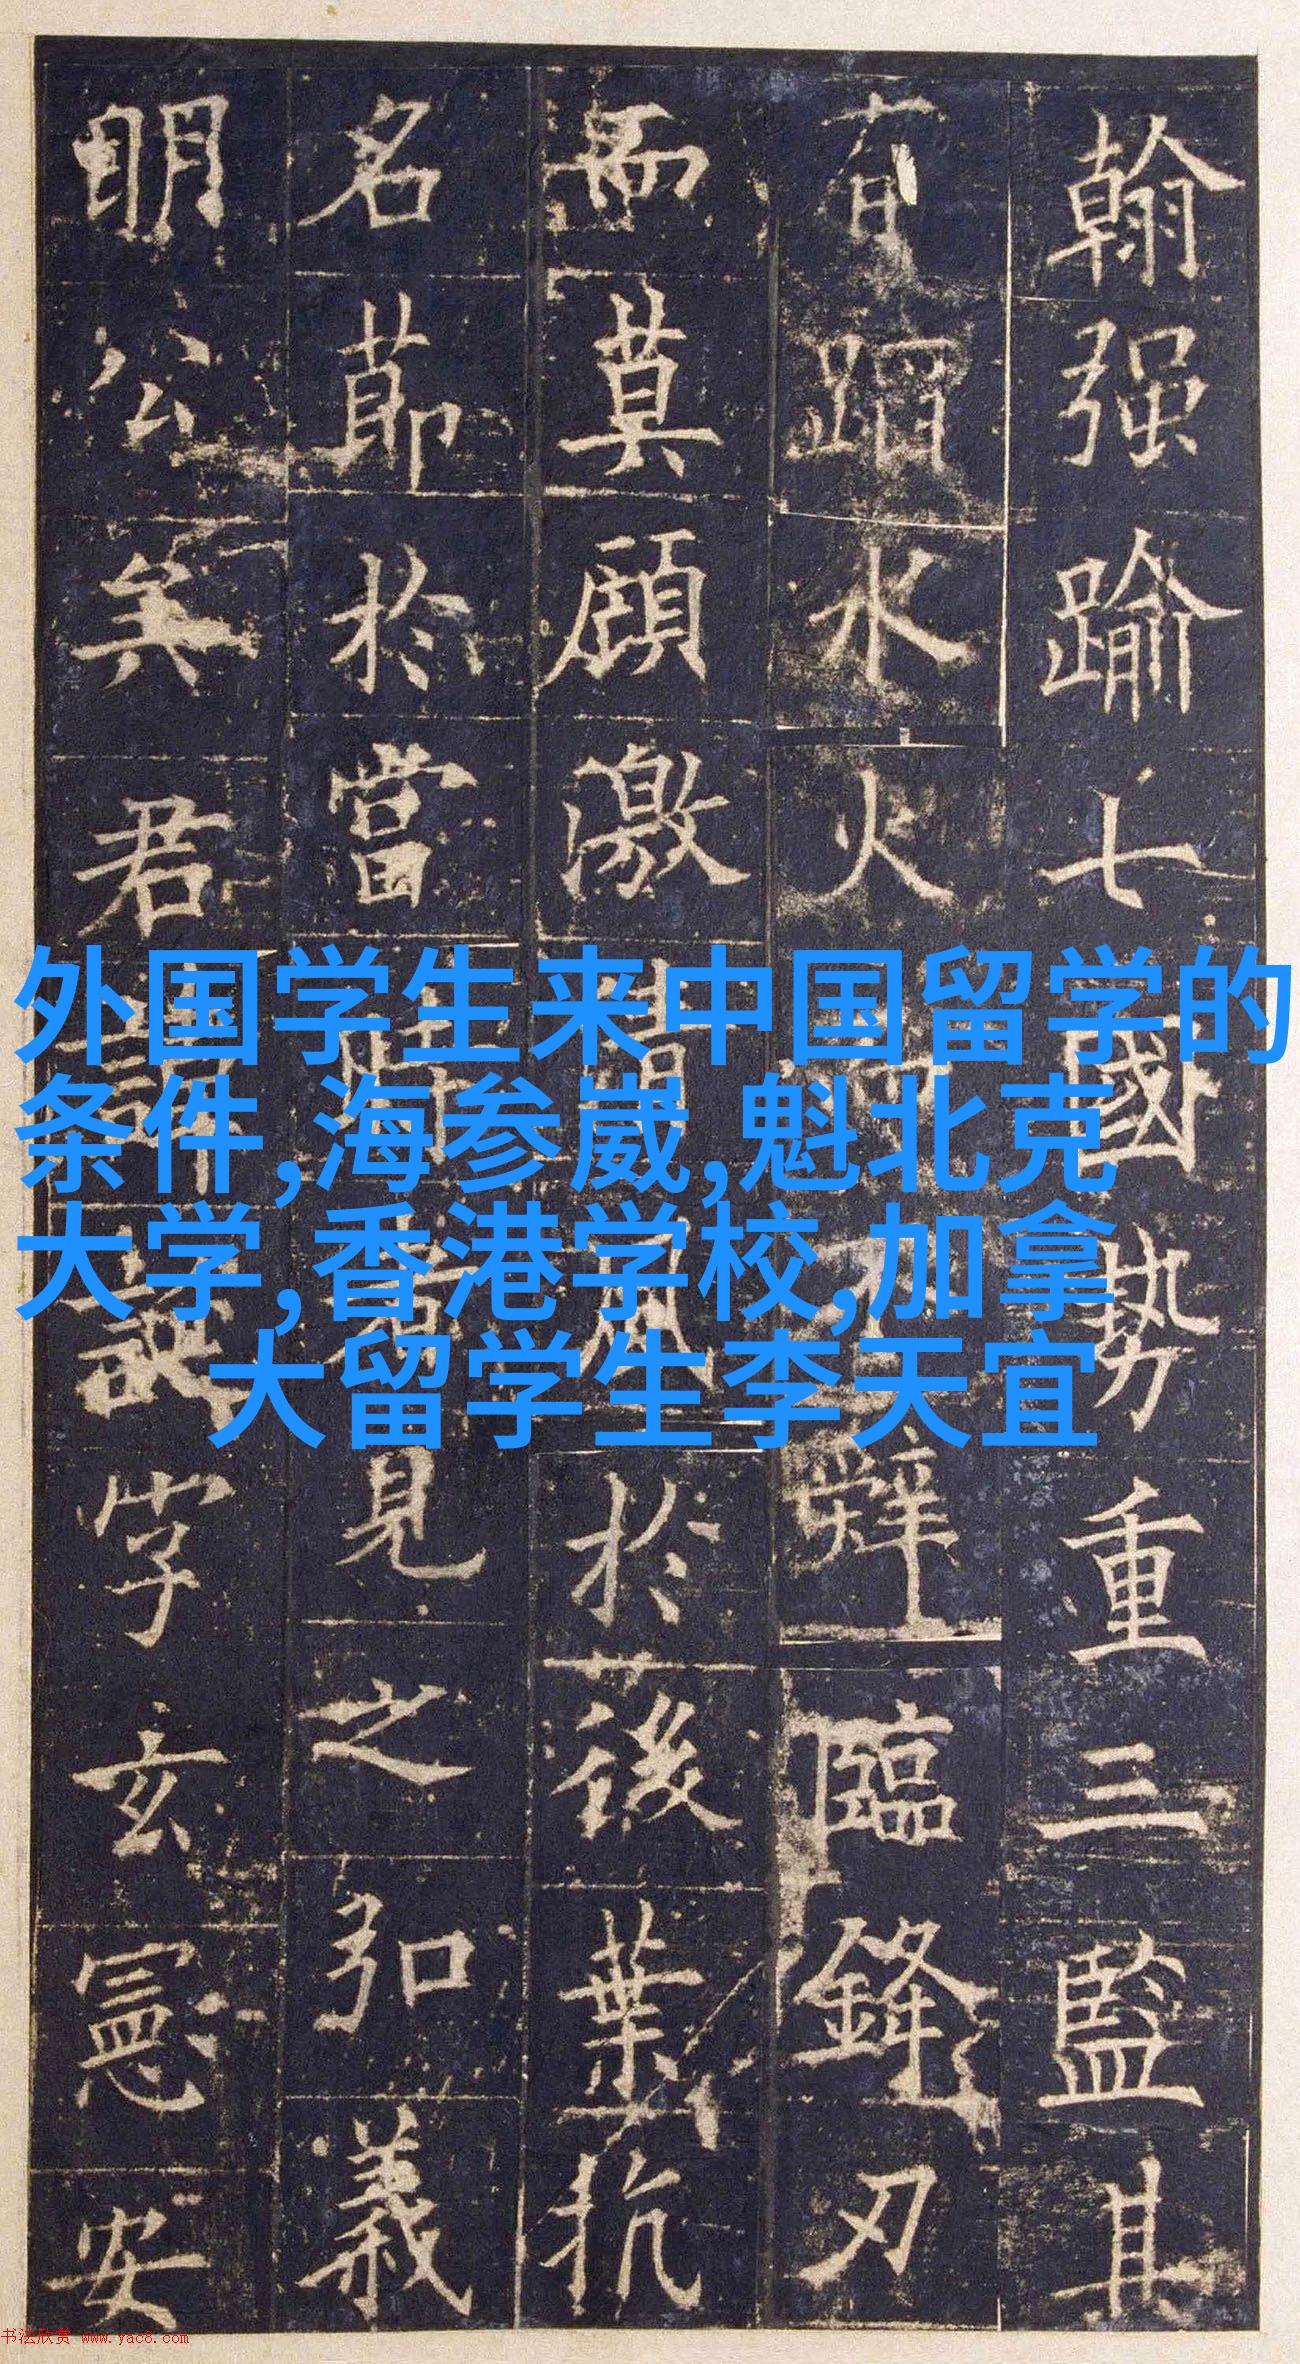 外国学生来中国留学的
条件,海参崴,魁北克
大学,香港学校,加拿
大留学生李天宜
翰强踰七國勢重三監其
有蹈水火而不辭臨鋒刃
而莫顧激清風於後葉抗
名節於當時者見之弘義
明公矣君諱誕字玄憲安
书法欣赏 www.yac8.com